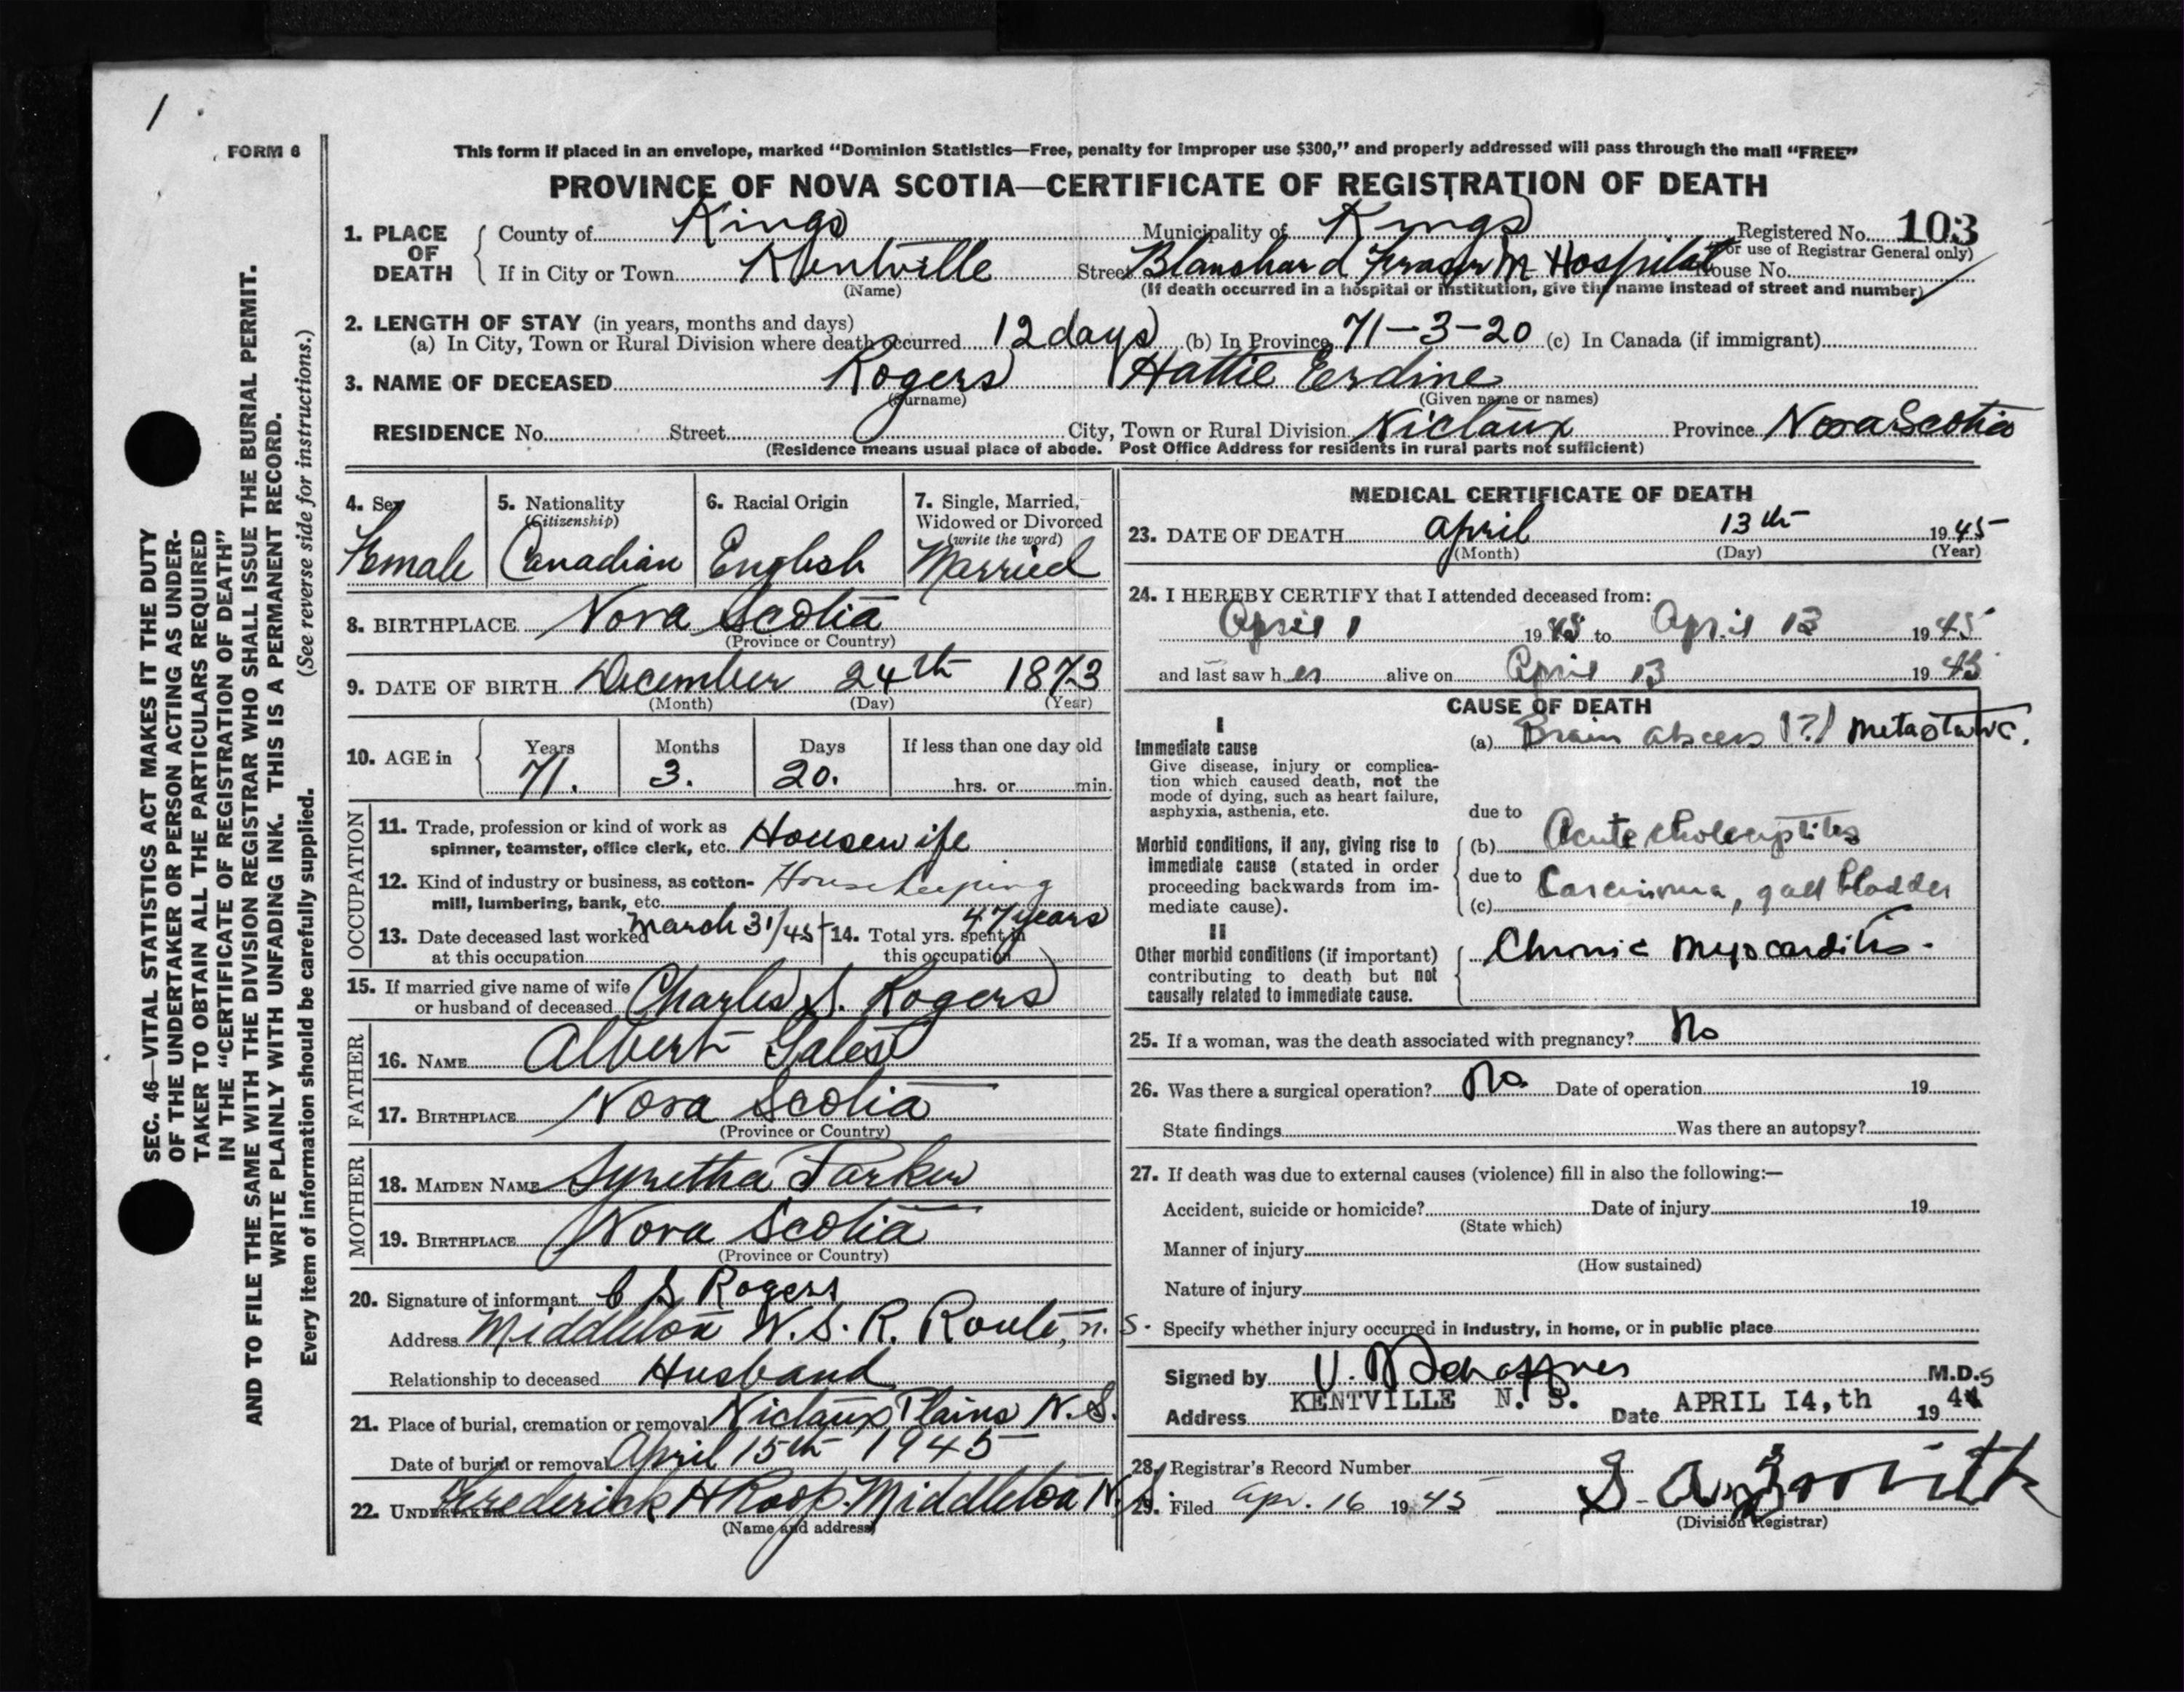 1
FORM 6
This form if placed in an envelope, marked “Dominion Statistics—Free, penalty for improper use $300,” and properly addressed will pass through the mail “FREE”
PROVINCE OF NOVA SCOTIA—CERTIFICATE OF REGISTRATION OF DEATH
1. PLACE OF DEATH County of Kings Municipality of Kings Registered No. 103
(For use of Registrar General only)
If in City or Town Kentville Street Blanchard Fraser M Hospital House No.
(Name) (If death occurred in a hospital or institution, give the name instead of street and number)
2. LENGTH OF STAY (in years, months and days)
(a) In City, Town or Rural Division where death occurred 12 days (b) In Province 71-3-20 (c) In Canada (if immigrant)
3. NAME OF DECEASED Rogers Hattie Erdine
(Surname) (Given name or names)
RESIDENCE No. Street City, Town or Rural Division Nictaux Province Nova Scotia
(Residence means usual place of abode. Post Office Address for residents in rural parts not sufficient)
4. Sex Female
5. Nationality (Citizenship) Canadian
6. Racial Origin English
7. Single, Married, Widowed or Divorced (write the word) Married
8. BIRTHPLACE Nova Scotia
(Province or Country)
9. DATE OF BIRTH December 24th 1873
(Month) (Day) (Year)
10. AGE in Years 71. Months 3. Days 20. If less than one day old hrs. or min.
OCCUPATION
11. Trade, profession or kind of work as spinner, teamster, office clerk, etc. Housewife
12. Kind of industry or business, as cotton-mill, lumbering, bank, etc. Housekeeping
13. Date deceased last worked at this occupation March 31/45
14. Total yrs. spent in this occupation 47 years
15. If married give name of wife or husband of deceased Charles S. Rogers
FATHER
16. NAME Albert Gates
17. BIRTHPLACE Nova Scotia
(Province or Country)
MOTHER
18. MAIDEN NAME Syretha Parker
19. BIRTHPLACE Nova Scotia
(Province or Country)
20. Signature of informant C S Rogers
Address Middleton N.S. R. Route, n. S.
Relationship to deceased Husband
21. Place of burial, cremation or removal Nictaux Plains N.S.
Date of burial or removal April 15th 1945
22. UNDERTAKER Frederick H Roop. Middleton N.S.
(Name and address)
MEDICAL CERTIFICATE OF DEATH
23. DATE OF DEATH April 13th 1945
(Month) (Day) (Year)
24. I HEREBY CERTIFY that I attended deceased from:
April 1 1945 to April 13 1945
and last saw her alive on April 13 1945
CAUSE OF DEATH
I
Immediate cause
Give disease, injury or complica-
tion which caused death, not the
mode of dying, such as heart failure,
asphyxia, asthenia, etc.
(a) Brain abscess (?) metastatic.
due to
Morbid conditions, if any, giving rise to
immediate cause (stated in order
proceeding backwards from im-
mediate cause).
(b) Acute cholecystitis
due to
(c) Carcinoma, gall bladder
II
Other morbid conditions (if important)
contributing to death but not
causally related to immediate cause.
Chronic myocarditis.
25. If a woman, was the death associated with pregnancy? No
26. Was there a surgical operation? No. Date of operation 19
State findings Was there an autopsy?
27. If death was due to external causes (violence) fill in also the following:—
Accident, suicide or homicide? Date of injury 19
(State which)
Manner of injury
(How sustained)
Nature of injury
Specify whether injury occurred in industry, in home, or in public place
Signed by V. D Schaffner M.D.
Address KENTVILLE N. S. Date APRIL I4,th 1945
28. Registrar's Record Number
29. Filed Apr. 16 1945
(Division Registrar)
SEC. 46—VITAL STATISTICS ACT MAKES IT THE DUTY
OF THE UNDERTAKER OR PERSON ACTING AS UNDER-
TAKER TO OBTAIN ALL THE PARTICULARS REQUIRED
IN THE “CERTIFICATE OF REGISTRATION OF DEATH”
AND TO FILE THE SAME WITH THE DIVISION REGISTRAR WHO SHALL ISSUE THE BURIAL PERMIT.
WRITE PLAINLY WITH UNFADING INK. THIS IS A PERMANENT RECORD.
Every item of information should be carefully supplied. (See reverse side for instructions.)